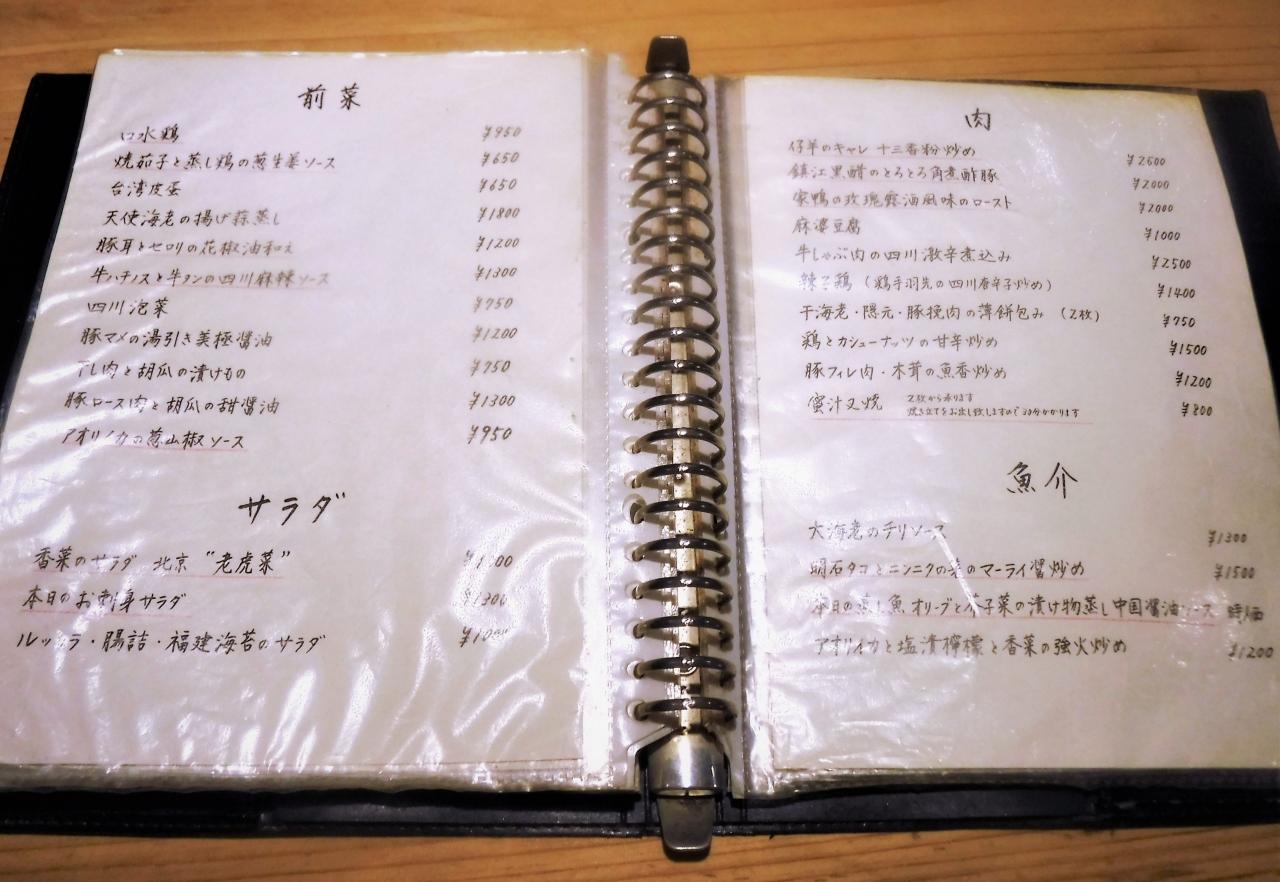 前菜
口水鶏 ¥950
焼茄子と蒸し鶏の葱生姜ソース ¥650
台湾皮蛋 ¥650
天使海老の揚げ蒜蒸し ¥1800
豚耳とセロリの花椒油和え ¥1200
牛ハチノスと牛タンの四川麻辣ソース ¥1300
四川泡菜 ¥750
豚マメの湯引き美極醤油 ¥1200
干し肉と胡瓜の漬けもの ¥750
豚ロース肉と胡瓜の甜醤油 ¥1300
アオリイカの葱山椒ソース ¥950
サラダ
香菜のサラダ 北京 "老虎菜"
本日のお刺身サラダ ¥1300
ルッコラ・腸詰・福建海苔のサラダ
肉
仔羊のキャレ 十三香粉炒め ¥2600
鎮江黒醋のとろとろ角煮酢豚 ¥2000
家鴨の玫瑰露酒風味のロースト ¥2000
麻婆豆腐 ¥1000
牛しゃぶ肉の四川激辛煮込み ¥2500
辣子鶏 (鶏手羽先の四川唐辛子炒め) ¥1400
干海老・隠元・豚挽肉の薄餅包み (2枚) ¥750
鶏とカシューナッツの甘辛炒め ¥1500
豚フィレ肉・木茸の魚香炒め ¥1200
蜜汁叉焼 2枚から承ります ¥800
焼き立てをお出し致しますので30分かかります
魚介
大海老のチリソース ¥1300
明石タコとニンニクの芽のマーライ醤炒め ¥1500
本日の蒸し魚 オリーブと芥子菜の漬け物蒸し中国醤油ソース 時価
アオリイカと塩漬檸檬と香菜の強火炒め ¥1200